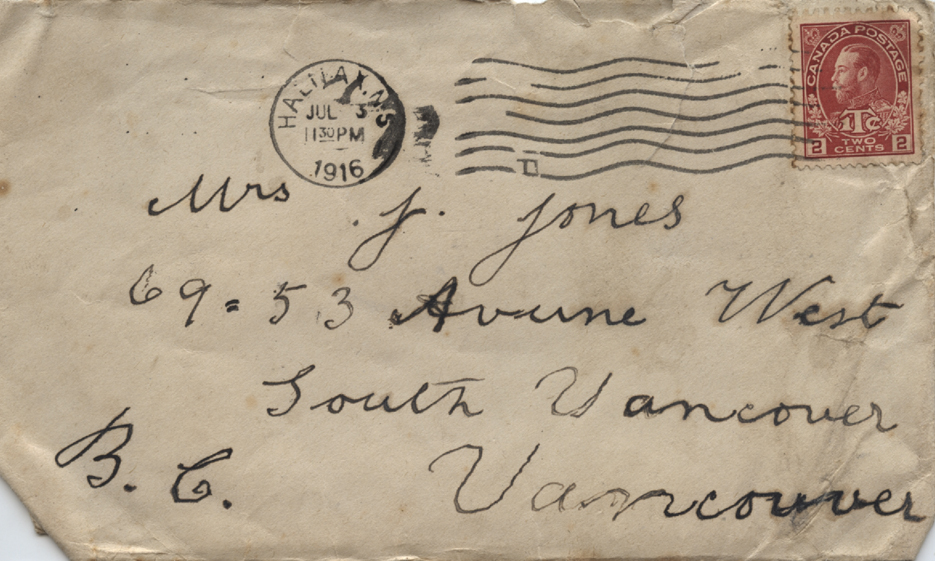 CANADA POSTAGE
1Tc
2 TWO CENTS 2
HALIFAX, N.S
JUL 3
11 30 PM
1916
Mrs. J. Jones
69 = 53 Avune West
South Vancover
Vancouver
B. C.